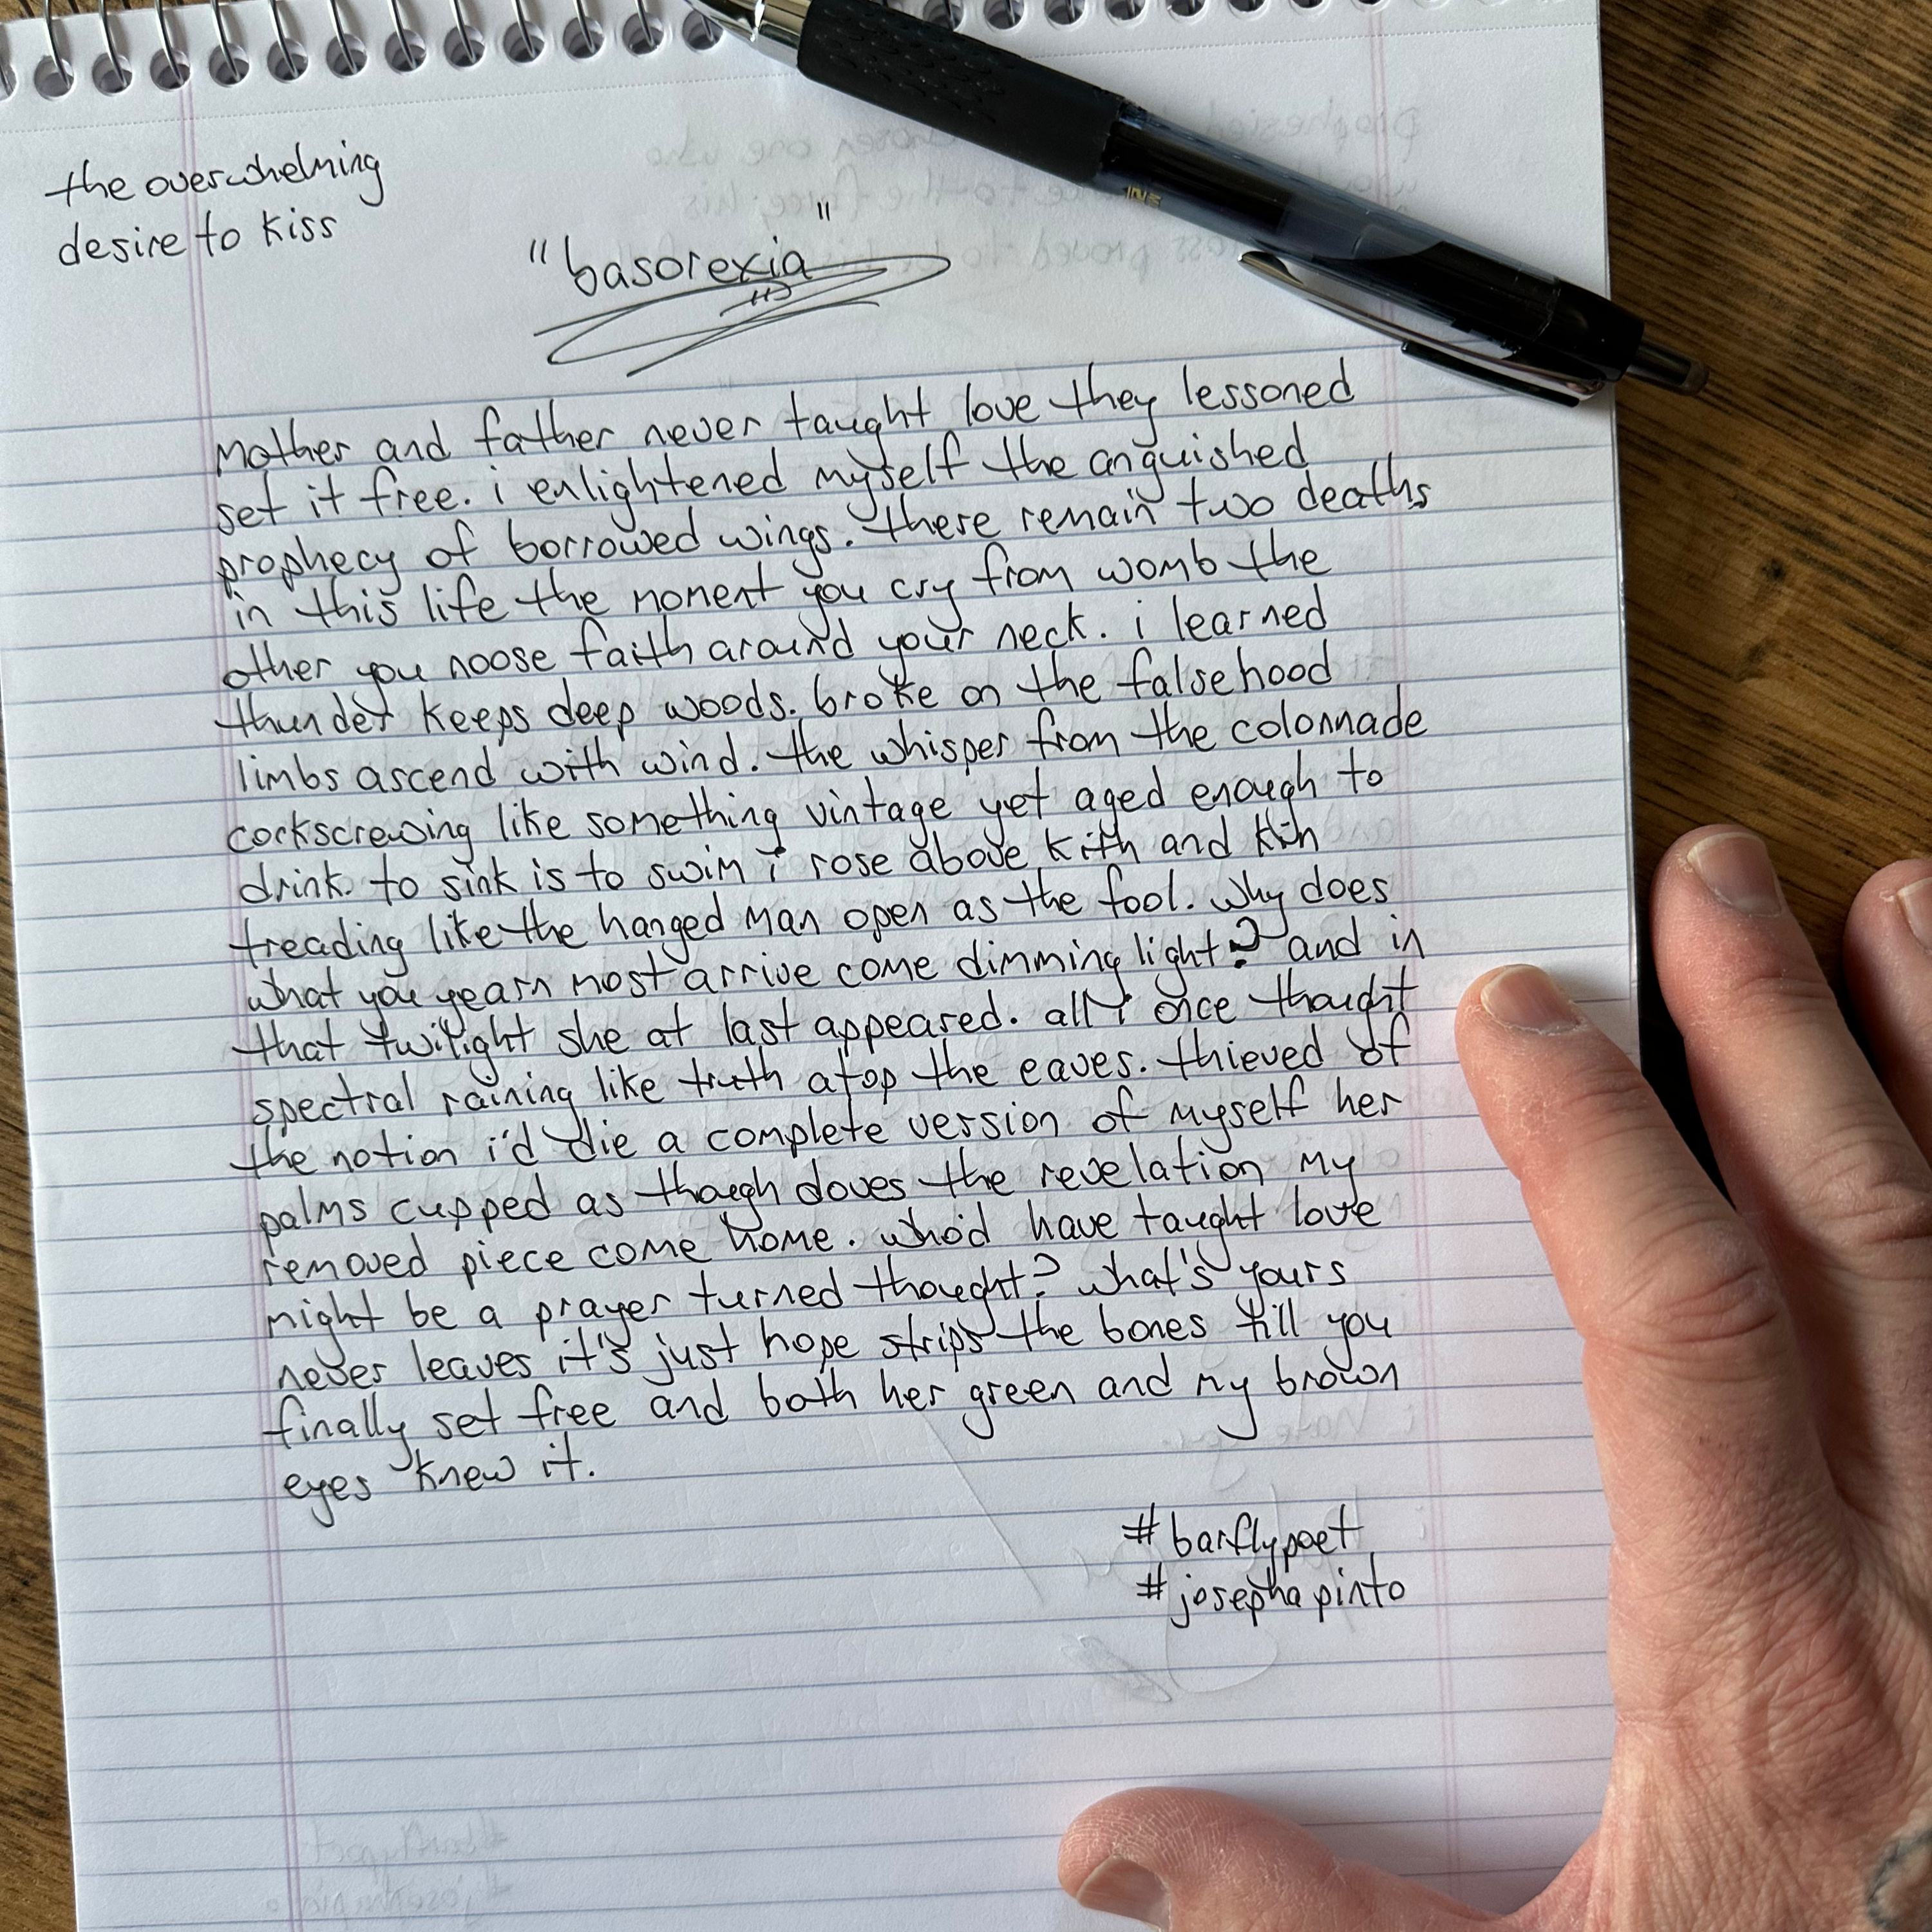 the overwhelming
desire to kiss
"basorexia"
mother and father never taught love they lessoned
set it free. i enlightened myself the anguished
prophecy of borrowed wings. there remain two deaths
in this life the moment you cry from womb the
other you noose faith around your neck. i learned
thunder keeps deep woods. broke on the falsehood
limbs ascend with wind. the whisper from the colonnade
corkscrewing like something vintage yet aged enough to
drink. to sink is to swim i rose above kith and kin
treading like the hanged man open as the fool. why does
what you yearn most arrive come dimming light? and in
that twilight she at last appeared. all i once thought
spectral raining like truth atop the eaves. thieved of
the notion i'd die a complete version of myself her
palms cupped as though doves the revelation my
removed piece come home. who'd have taught love
might be a prayer turned thought? what's yours
never leaves it's just hope strips the bones till you
finally set free and both her green and my brown
eyes knew it.
#barflypoet
#josephapinto